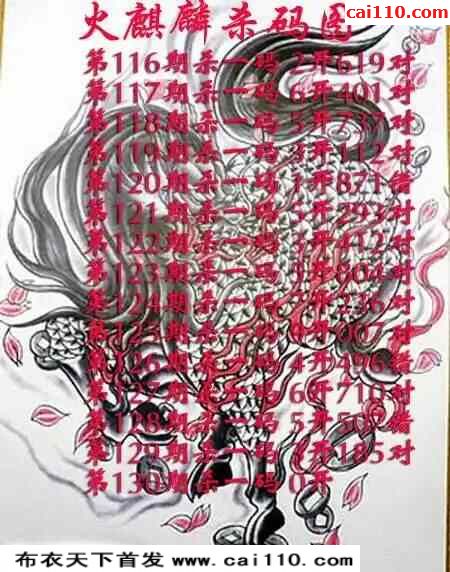 cai110.com
火麒麟杀码图
第116期杀一码 2开619对
第117期杀一码 6开401对
第118期杀一码 5开 对
第119期杀一码 3开112对
第120期杀一码 1开871错
第121期杀一码 5开293对
第122期杀一码 开412对
第123期杀一码 开804对
第124期杀一码 开236对
第125期杀一码 开007对
第126期杀一码 4开496错
第127期杀一码 6开710对
第128期杀一码 5开 错
第129期杀一码 开185对
第130期杀一码 0开
布衣天下首发 www.cai110.com